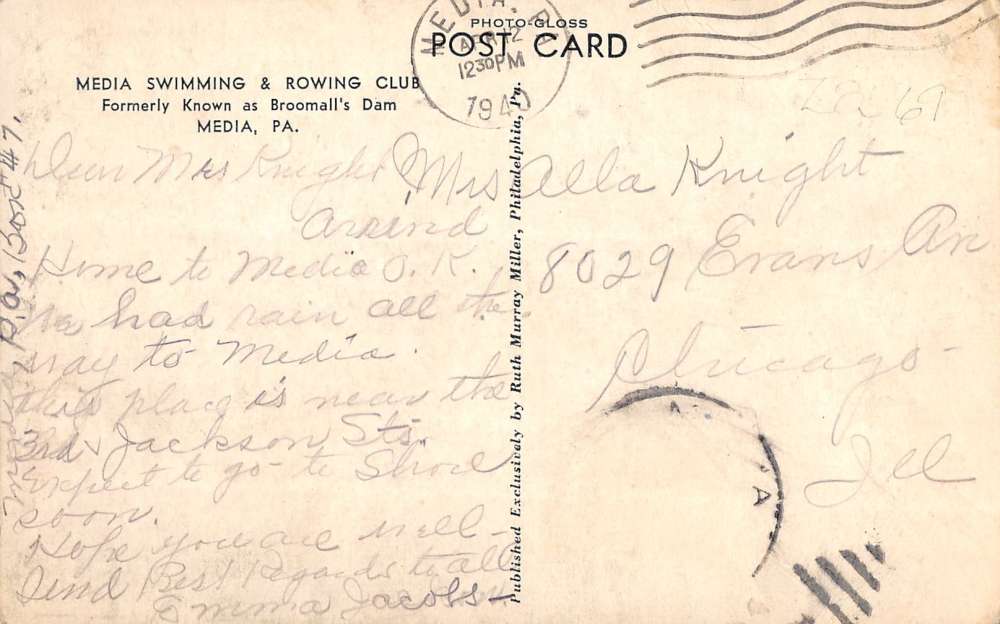 PHOTO-GLOSS
POST CARD
MEDIA, PA.
APR 2
1230 PM
1940
MEDIA SWIMMING & ROWING CLUB
Formerly Known as Broomall's Dam
MEDIA, PA.
Dear Mrs Knight
Home to Media O.K.
We had rain all the
way to Media.
this place is near the
3rd & Jackson Sts.
Expect to go to Shore
soon.
Hope you are well-
Send Best Regards to all
Emma Jacobs-
Media P.O. Box 47.
Published Exclusively by Ruth Murray Miller, Philadelphia, Pa.
Mrs Alla Knight
8029 Evans Av
Chicago-
Ill
A